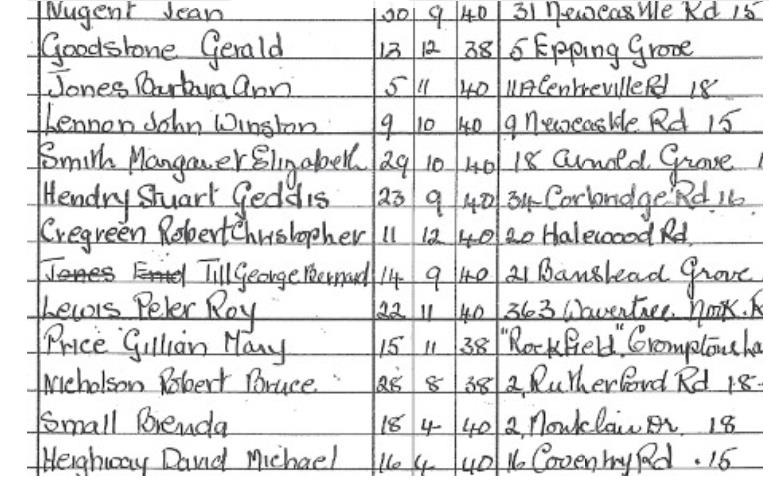 Nugent Jean 30 9 40 31 Newcastle Rd 15
Goodstone Gerald 13 12 38 5 Epping Grove
Jones Barbara Ann 5 11 40 11A Centreville Rd 18
Lennon John Winston 9 10 40 9 Newcastle Rd 15
Smith Margaret Elizabeth 29 10 40 18 Arnold Grove 1
Hendry Stuart Geddis 23 9 40 34 Corbridge Rd 16
Cregreen Robert Christopher 11 12 40 20 Halewood Rd
Jones Enid Till George Bernard 14 9 40 21 Banstead Grove
Lewis Peter Roy 22 11 40 363 Wavertree Nook R
Price Gillian Mary 15 11 38 "Rockfield" Cromptons La
Nicholson Robert Bruce 28 8 38 2, Rutherford Rd 18
Small Brenda 18 4 40 2, Dr. 18
Heighway David Michael 16 4 40 16 Coventry Rd. 15